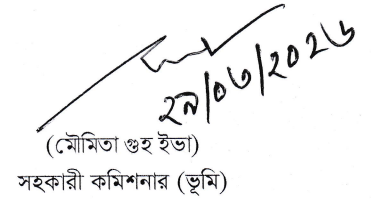 ২৯/০৩/২০২৬
(মৌমিতা গুহ ইভা)
সহকারী কমিশনার (ভূমি)